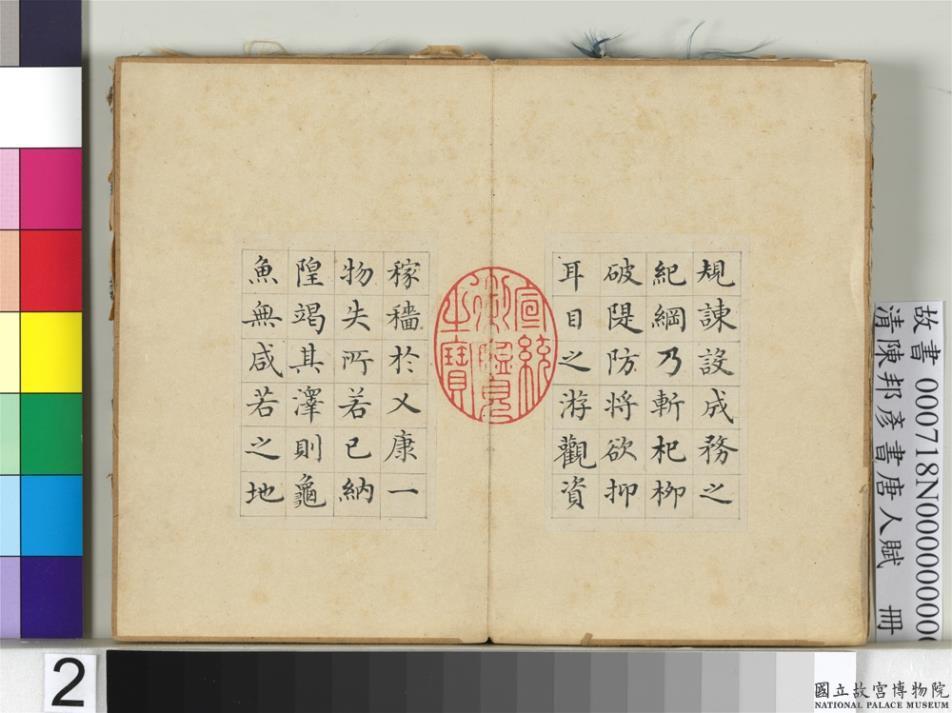 規諫設成務之
紀綱乃斬杞柳
破隄防将欲抑
耳目之游觀資
稼穡於乂康一
物失所若已納
隍竭其澤則龜
魚無咸若之地
宣統
御覽
之寶
故書 000718N00000000
清陳邦彥書唐人賦 冊
2
國立故宮博物院
NATIONAL PALACE MUSEUM